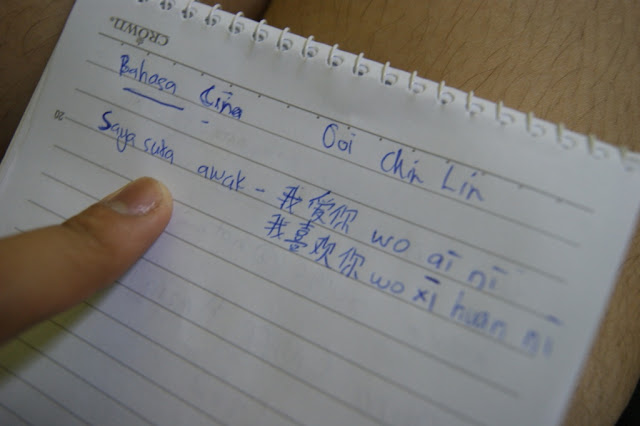 CROWN.
Bahasa Cina Ooi Chin Lin
20
Saya suka awak - 我愛你 wo ai ni
我喜欢你 wo xī huan ni